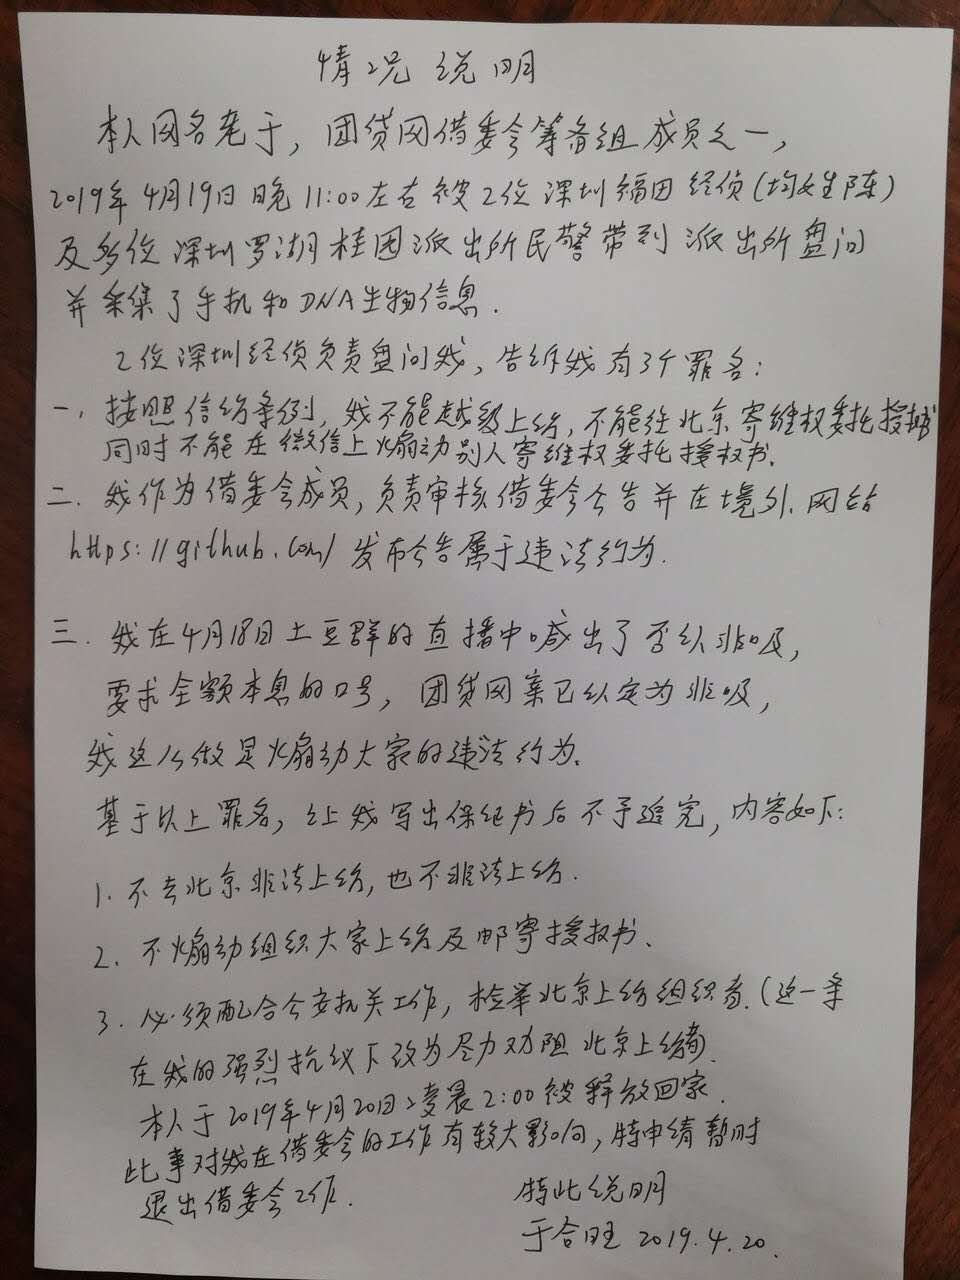 情况说明
本人网名老于，团贷网借委会筹备组成员之一，
2019年4月19日晚11:00左右被2位深圳福田经侦(均姓陈)
及多位深圳罗湖桂园派出所民警带到派出所盘问
并采集了手机和DNA生物信息.
2位深圳经侦负责盘问我，告诉我有3个罪名：
一、按照信访条例，我不能越级上访，不能往北京寄维权委托授权书
同时不能在微信上煽动别人寄维权委托授权书.
二、我作为借委会成员，负责审核借委会公告并在境外网站
https://github.com/ 发布公告属于违法行为.
三、我在4月18日土豆群的直播中喊出了否认非吸，
要求全额本息的口号，团贷网案已认定为非吸，
我这么做是煽动大家的违法行为.
基于以上罪名，让我写出保证书后不予追究，内容如下：
1. 不去北京非法上访，也不非法上访.
2. 不煽动组织大家上访及邮寄授权书、
3. 必须配合公安机关工作，检举北京上访组织者.(这一条
在我的强烈抗议下改为尽力劝阻北京上访者).
本人于2019年4月20日凌晨2:00被释放回家.
此事对我在借委会的工作有较大影响，特申请暂时
退出借委会工作.
特此说明
于合旺 2019.4.20.